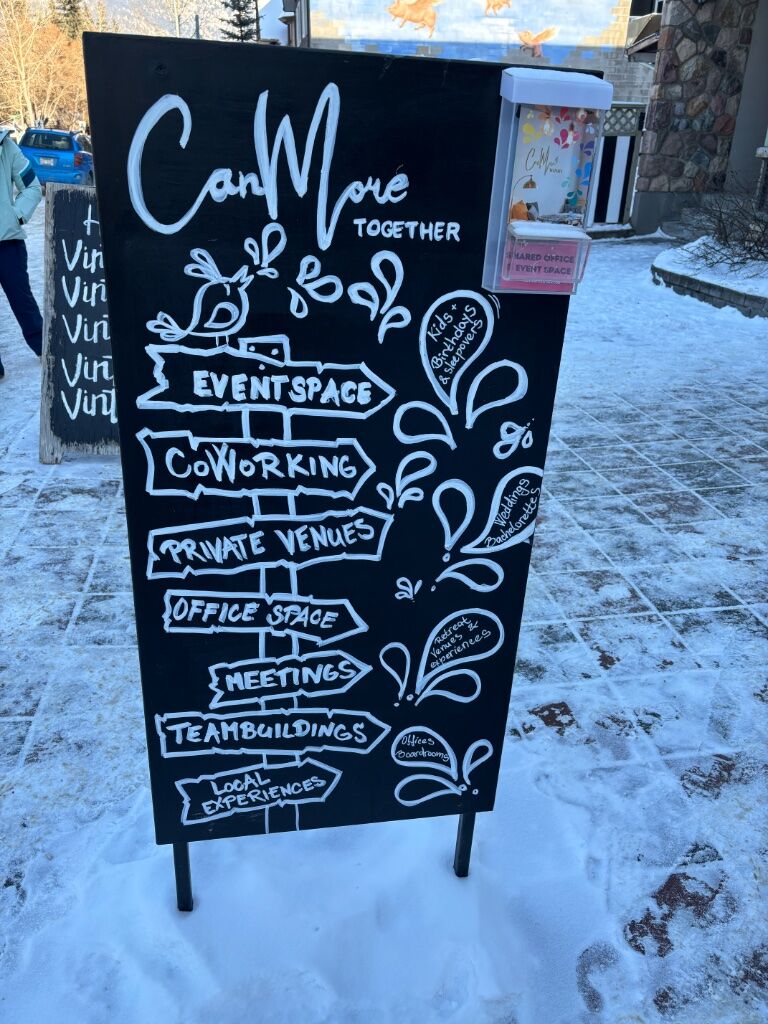 CanMore
TOGETHER
EVENTSPACE
COWORKING
PRIVATE VENUES
OFFICE SPACE
MEETINGS
TEAMBUILDINGS
LOCAL
EXPERIENCES
Kids +
Birthdays
& sleepovers
Weddings
Bachelorettes
Retreat
Venues &
experiences
Offices
Boardrooms
CanMore
SHARED OFFICE
& EVENT SPACE
H
Vin
Vin
Vin
Vin
Vint